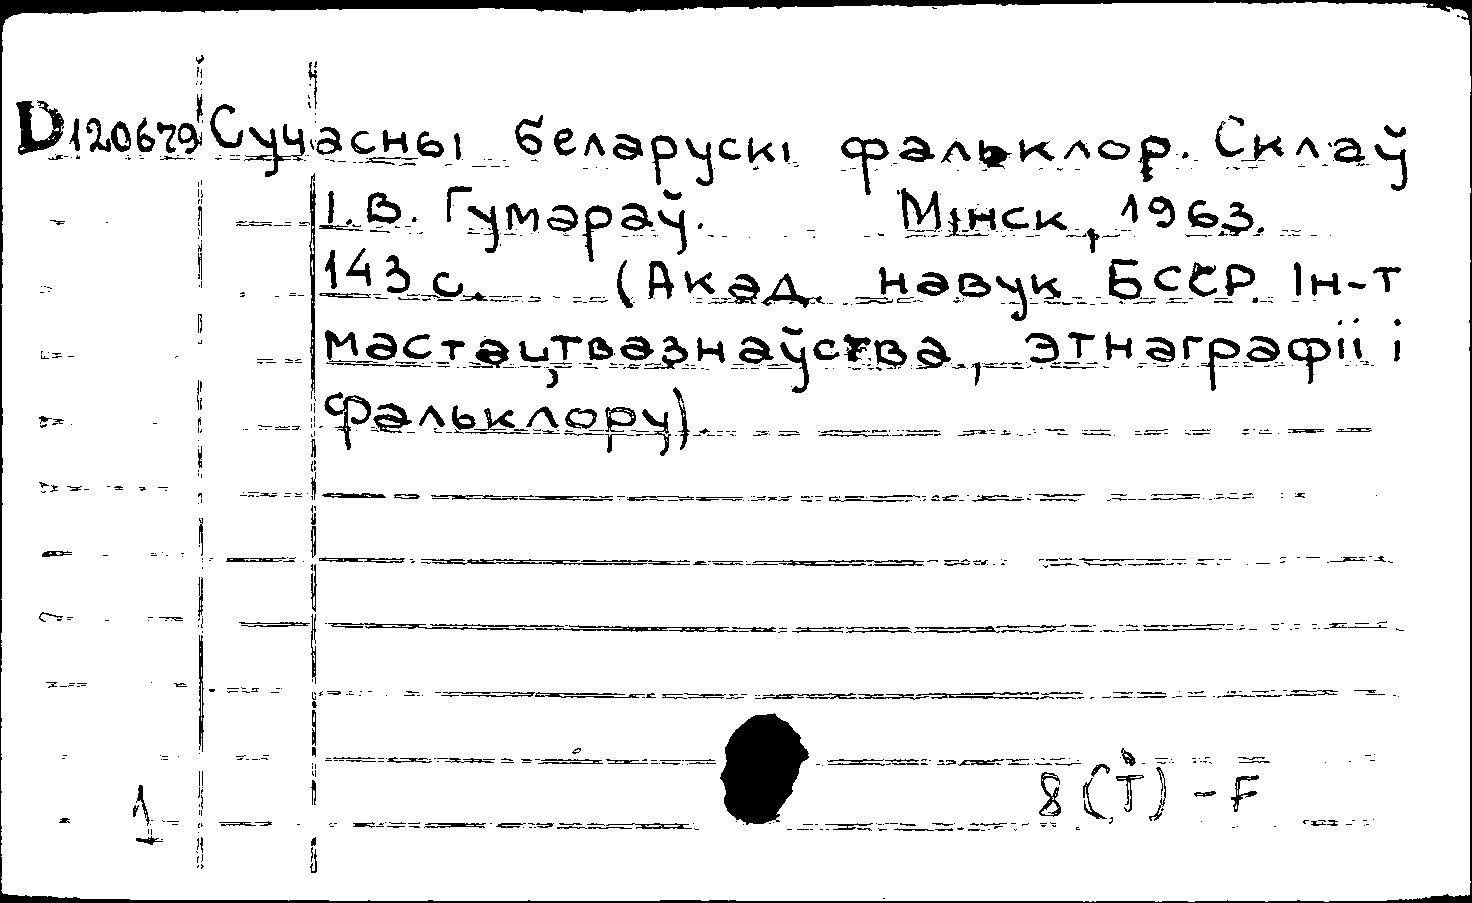 D120679 Сучасны беларускі фальклор. Склаў
І. В. Гумараў. Мінск, 1963.
143 с. (Акад. навук БССР. Ін-т
мастацтвазнаўства, этнаграфіі і
фальклору).
1 8(Т) - F